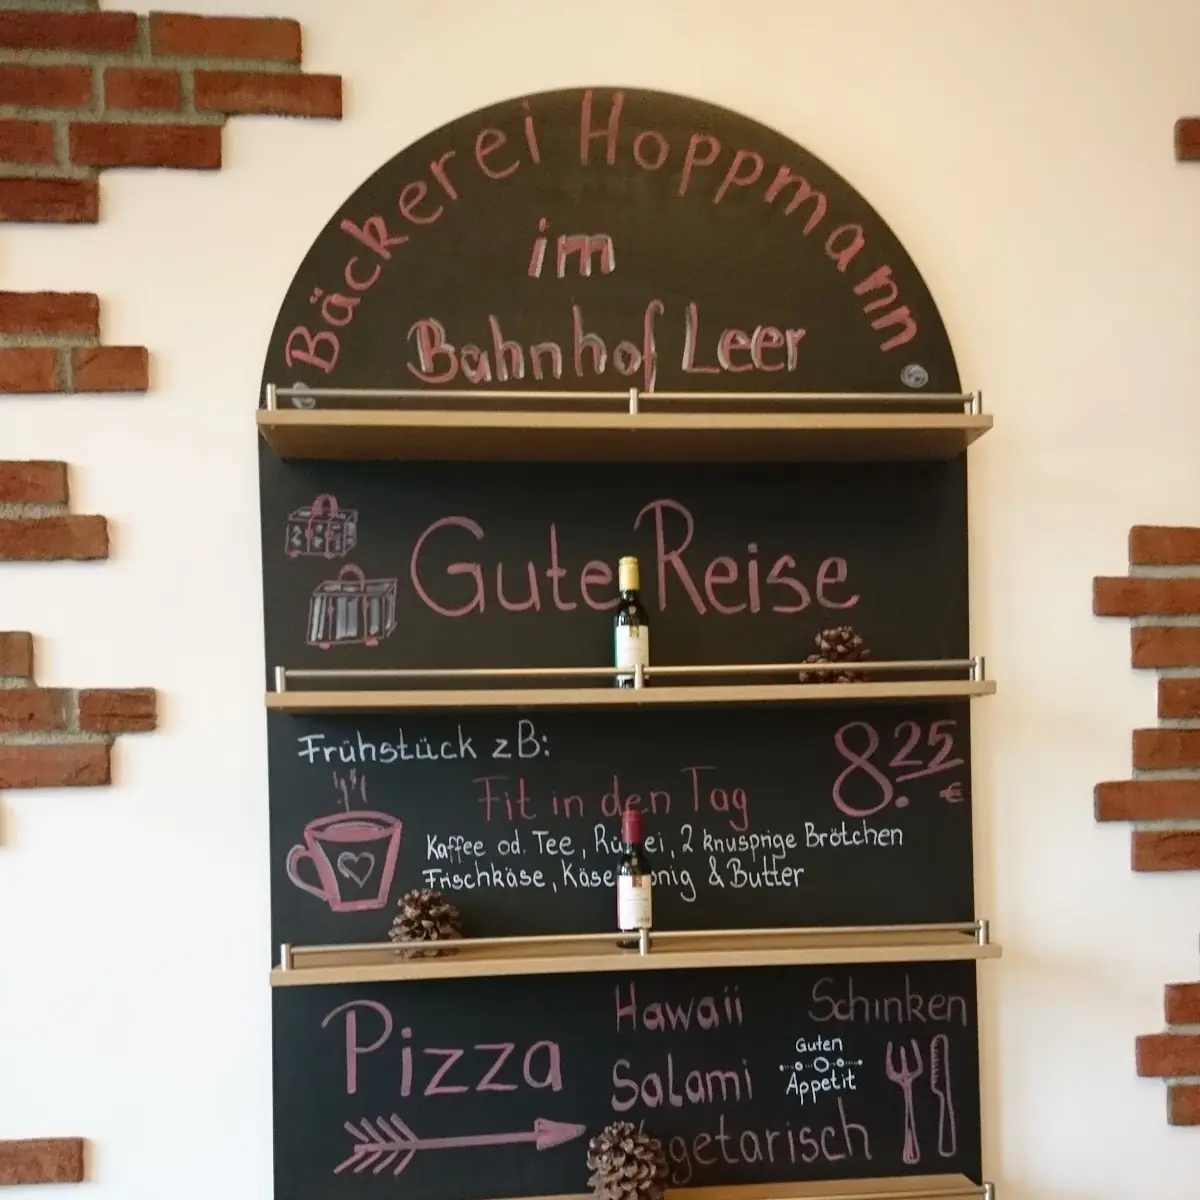 Bäckerei Hoppmann
im
Bahnhof Leer
Gute Reise
Frühstück zB:
8.25 €
Fit in den Tag
Kaffee od. Tee, 2 knusprige Brötchen
Frischkäse, Käse & Butter
Pizza
Hawaii
Schinken
Salami
Guten
Appetit